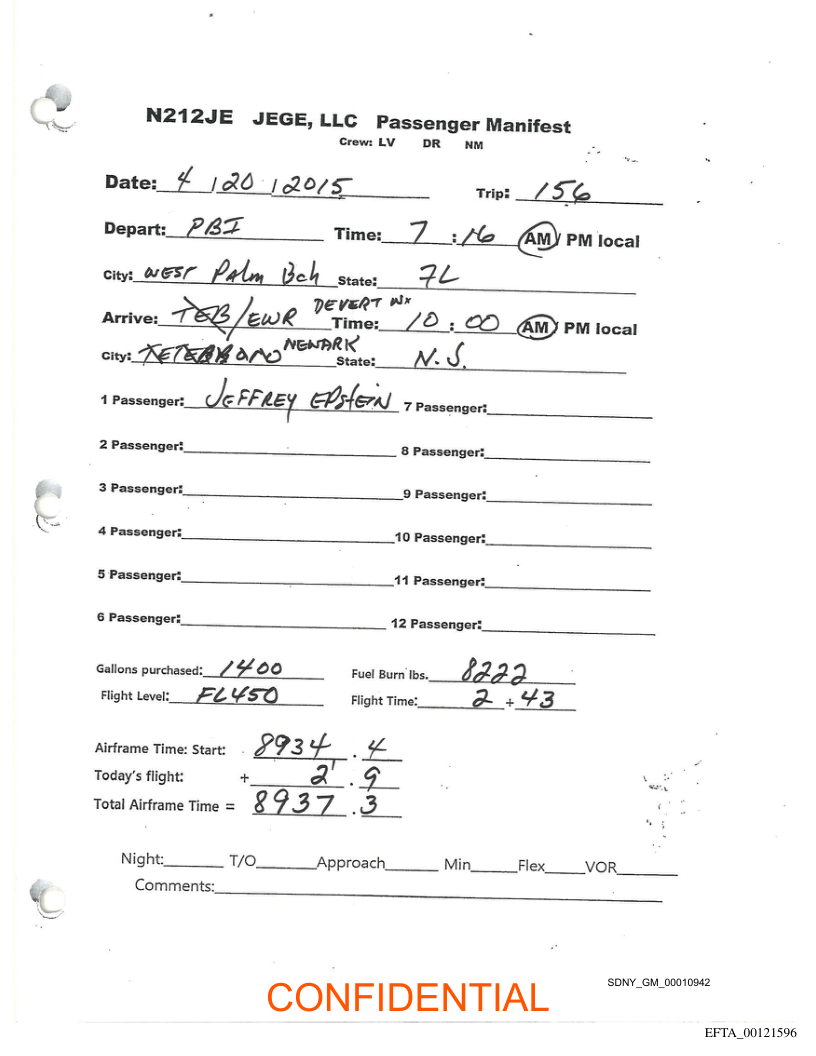 N212JE JEGE, LLC Passenger Manifest
Crew: LV DR NM
Date: 4 / 20 / 2015 Trip: 156
Depart: PBI Time: 7 : 16 AM / PM local
City: WEST Palm Bch State: FL
Arrive: TEB/EWR DEVERT WX Time: 10 : 00 AM / PM local
City: TETERBORO NEWARK State: N.J.
1 Passenger: JEFFREY EPStEIN 7 Passenger:
2 Passenger: 8 Passenger:
3 Passenger: 9 Passenger:
4 Passenger: 10 Passenger:
5 Passenger: 11 Passenger:
6 Passenger: 12 Passenger:
Gallons purchased: 1400 Fuel Burn lbs. 8222
Flight Level: FL450 Flight Time: 2 + 43
Airframe Time: Start: 8934 . 4
Today's flight: + 2 . 9
Total Airframe Time = 8937 . 3
Night: T/O Approach Min Flex VOR
Comments:
SDNY_GM_00010942
CONFIDENTIAL
EFTA_00121596